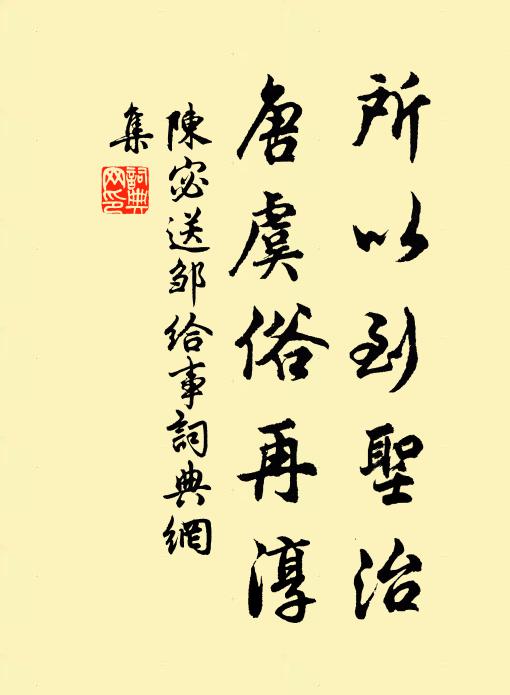 所以到聖治
唐虞俗再淳
陳宓送邹给事詞典網
集
詞典
网印